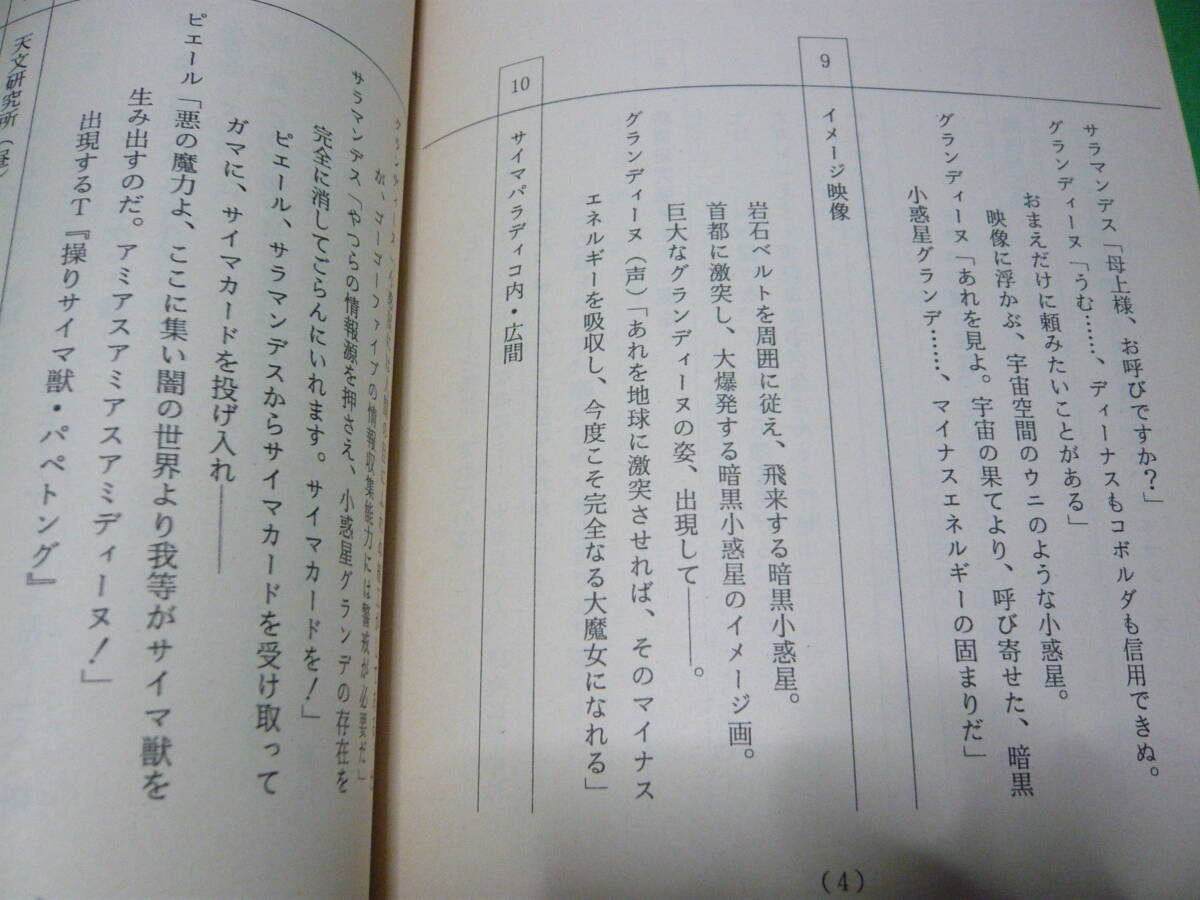 サラマンデス「母上様、お呼びですか？」
グランディーヌ「うむ……、ディーナスもコボルダも信用できぬ。
おまえだけに頼みたいことがある」
映像に浮かぶ、宇宙空間のウニのような小惑星。
グランディーヌ「あれを見よ。宇宙の果てより、呼び寄せた、暗黒
小惑星グランデ……、マイナスエネルギーの固まりだ」
9 イメージ映像
岩石ベルトを周囲に従え、飛来する暗黒小惑星。
首都に激突し、大爆発する暗黒小惑星のイメージ画。
巨大なグランディーヌの姿、出現して――。
グランディーヌ（声）「あれを地球に激突させれば、そのマイナス
エネルギーを吸収し、今度こそ完全なる大魔女になれる」
10 サイマパラディコ内・広間
(4)
が、ゴーゴーファイブの情報収集能力には警戒が必要だ」
サラマンデス「やつらの情報源を押さえ、小惑星グランデの存在を
完全に消してごらんにいれます。サイマカードを！」
ピエール、サラマンデスからサイマカードを受け取って
ガマに、サイマカードを投げ入れ――
ピエール「悪の魔力よ、ここに集い闇の世界より我等がサイマ獣を
生み出すのだ。アミアスアミアスアミディーヌ！」
出現するT『操りサイマ獣・パペトング』
天文研究所（昼）